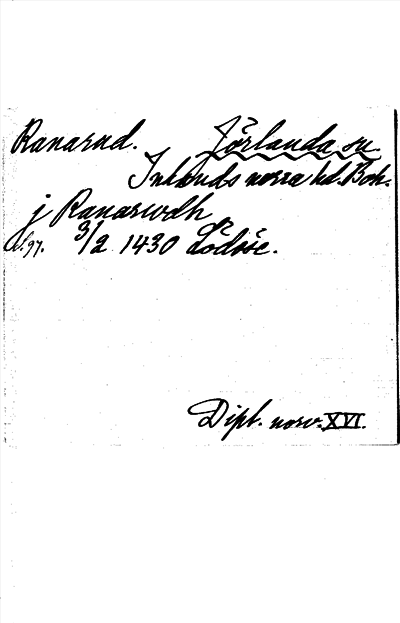 Ranarud. Jörlanda sn.
Inlands norra hd. Boh.
j Ranarwdh
s. 97. 3/2 1430 Lödöse.
Dipl. norv. XVI.